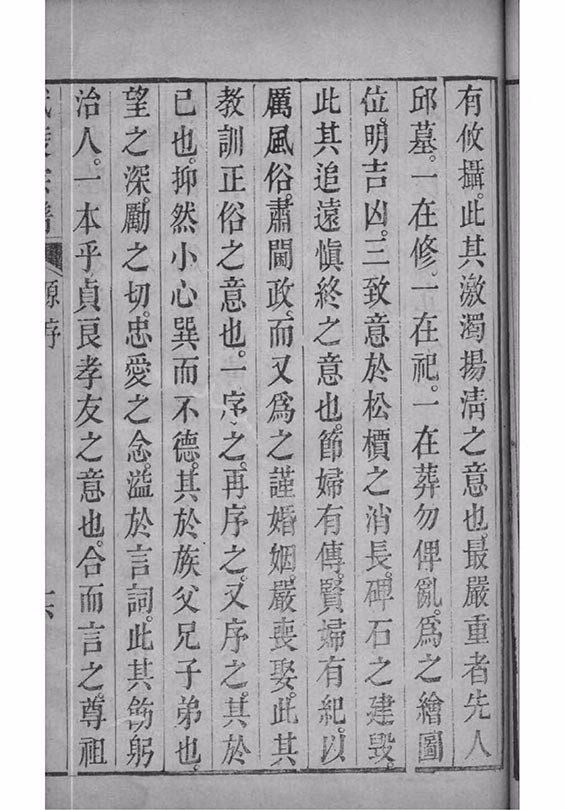 有攸攝。此其激濁揚淸之意也。最嚴重者先人
邱墓。一在修。一在祀。一在葬勿俾亂。爲之繪圖
位。明吉凶。三致意於松檟之消長。碑石之建毁。
此其追遠愼終之意也。節婦有傳。賢婦有紀。以
厲風俗。肅閫政。而又爲之謹婚姻。嚴喪娶。此其
教訓正俗之意也。一序之。再序之。又序之。其於
已也。抑然小心巽而不德。其於族父兄子弟也。
望之深。勵之切。忠愛之念。溢於言詞。此其飭躬
治人。一本乎貞良孝友之意也。合而言之。尊祖
宗譜 源序